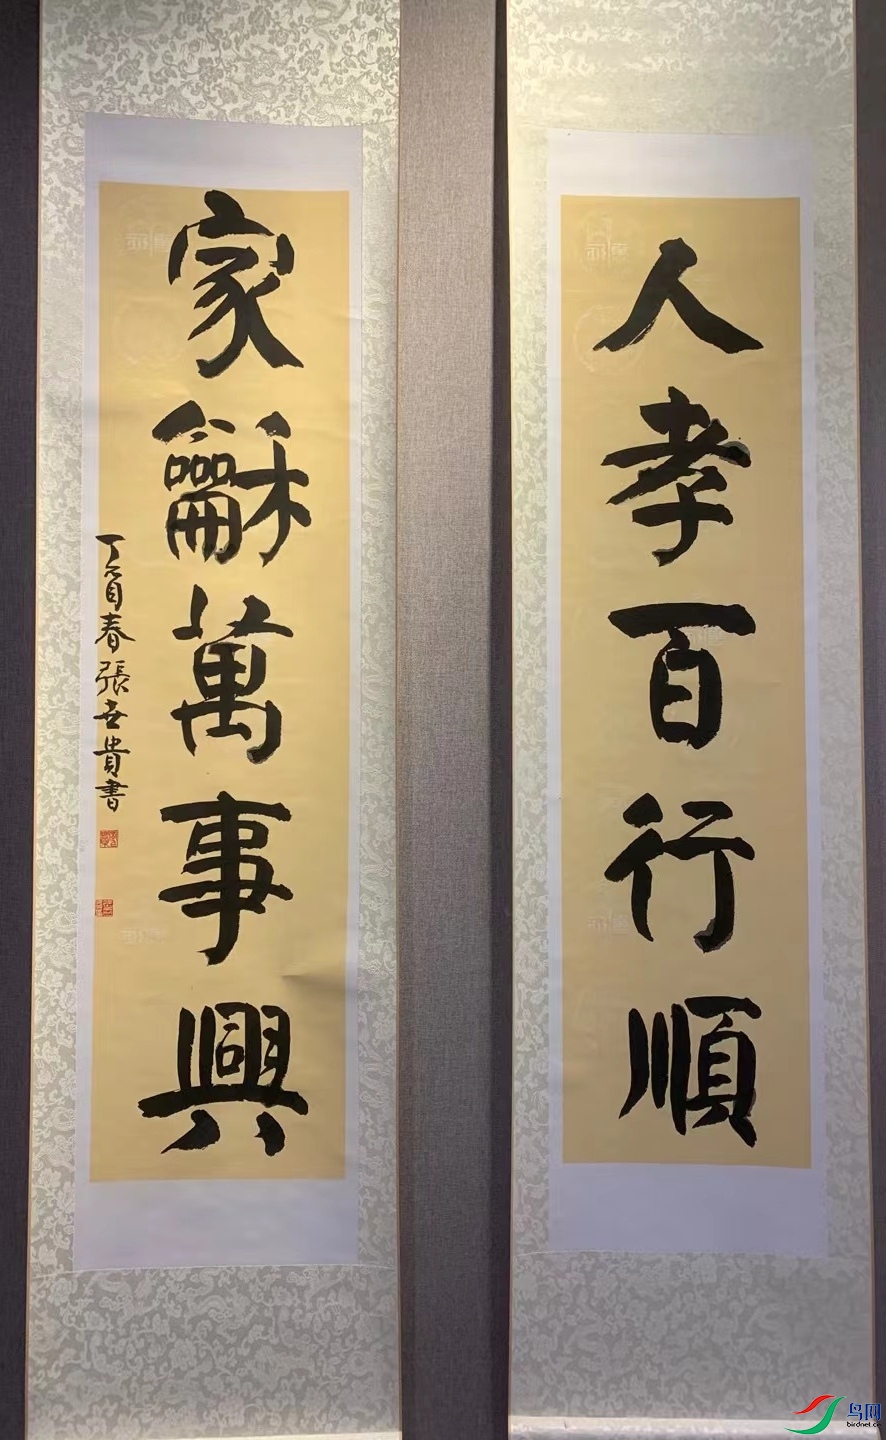 人孝百行順
家龢萬事興
丁酉春張世貴書
鸟网
birdnet.cn